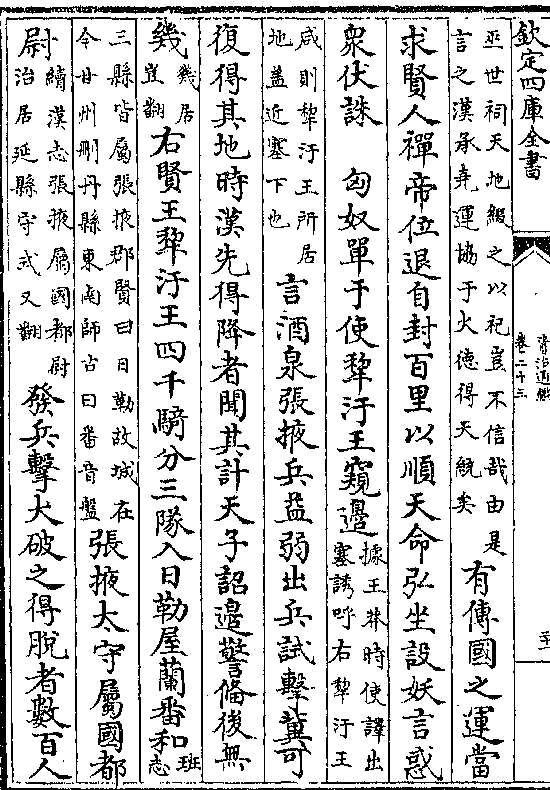 欽定四庫全書
資治通鑑
卷二十三
巫世祠天地綴之以祀豈不信哉由是
言之漢承堯運協于火德得天統矣
有傳國之運當
求賢人禪帝位退自封百里以順天命弘坐設妖言惑
衆伏誅　匈奴單于使犂汙王窺邊
據王莽時使譯出
塞誘呼右犂汙王
咸則犂汙王所居
地蓋近塞下也
言酒泉張掖兵益弱出兵試擊冀可
復得其地時漢先得降者聞其計天子詔邊警備後無
幾
幾居
豈翻
右賢王犂汙王四千騎分三隊入日勒屋蘭番和
班
志
三縣皆屬張掖郡賢曰日勒故城在
今甘州刪丹縣東南師古曰番音盤
張掖太守屬國都
尉
續漢志張掖屬國都尉
治居延縣守式又翻
發兵擊大破之得脫者數百人